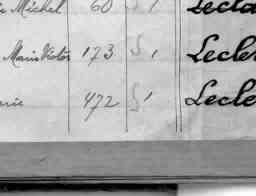 Michel 60 S 1 Lecla
Marie Victor 173 S 1 Lecler
arie 472 S 1 Lecle